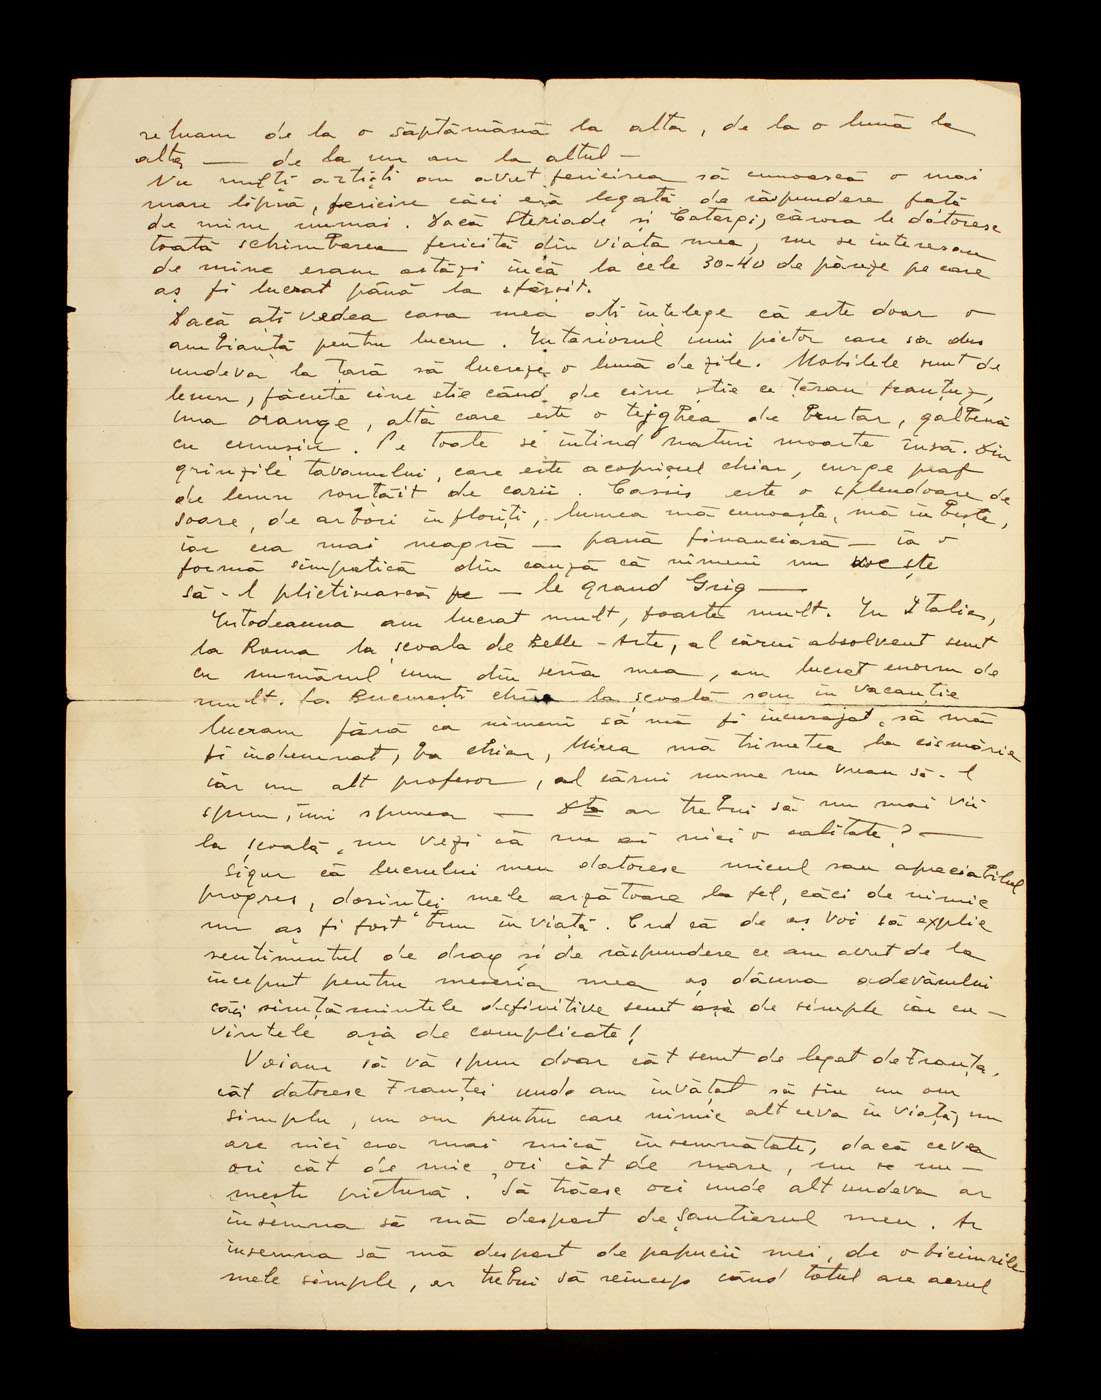 reluam de la o săptămână la alta, de la o lună la
alta — de la un an la altul —
Nu mulți artiști au avut fericirea să cunoască o mai
mare lipsă, fericire căci eră legată de răspundere față
de mine numai. Dacă Steriade și Catargi, cărora le datoresc
toată schimbarea fericită din viața mea, nu se interesau
de mine eram astăzi încă la cele 30-40 de pânze pe care
aș fi lucrat până la sfârșit.
Dacă ați vedea casa mea ați înțelege că este doar o
ambianță pentru lucru. Interiorul unui pictor care sa dus
undeva la țară să lucreze o lună de zile. Mobilele sunt de
lemn, făcute cine știe când, de cine știe ce țăran franțuz,
una orange, alta care este o tejghea de brutar, galbenă
cu cenușiu. Pe toate se întind naturi moarte însă. Din
grinzile tavanului, care este acoperișul chiar, curge praf
de lemn ronțăit de carii. Cassis este o splendoare de
soare, de arbori înfloriți, lumea mă cunoaște, mă iubește,
iar cea mai neagră — pană financiară — ia o
formă simpatică din cauză că nimeni nu voește
să-l plictisească pe — le grand Grig —
Întodeauna am lucrat mult, foarte mult. În Italia,
la Roma la școala de Belle-Arte, al cărui absolvent sunt
cu numărul unu din seria mea, am lucrat enorm de
mult. La București chiar la școală sau în vacanție
lucram fără ca nimeni să mă fi încurajat, să mă
fi îndemnat, ba chiar, Mirea mă trimetea la cismărie
iar un alt profesor, al cărui nume nu vreau să-l
spun, îmi spunea — Dta ar trebui să nu mai vii
la școală, nu vezi că nu ai nici o calitate? —
Sigur că lucrului meu datoresc micul sau apreciabilul
progres, dorinței mele arzătoare la fel, căci de nimic
nu aș fi fost bun în viață. Cred că de aș voi să explic
sentimentul de drag și de răspundere ce am avut de la
început pentru meseria mea aș dăuna adevărului
căci simțămintele definitive sunt așa de simple iar cu-
vintele așa de complicate!
Voiam să vă spun doar cât sunt de legat de Franța,
cât datoresc Franței unde am învățat să fiu un om
simplu, un om pentru care nimic alt ceva în viață, nu
are nici cea mai mică însemnătate, dacă ceva
ori cât de mic, ori cât de mare, nu se nu-
mește pictură. Să trăesc ori unde alt undeva ar
însemna să mă despart de șantierul meu. Ar
însemna să mă despart de papucii mei, de obiceiurile
mele simple, ar trebui să reîncep când totul are aerul